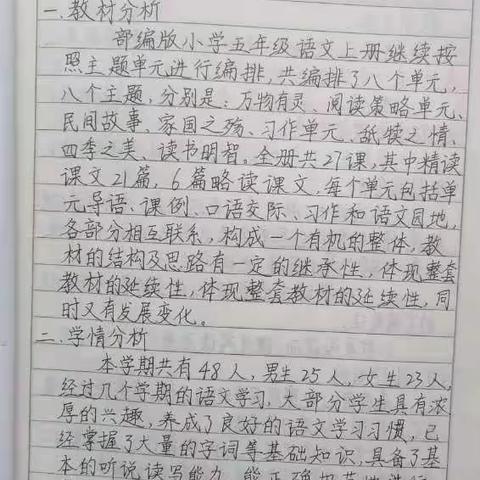 一.教材分析
部编版小学五年级语文上册继续按
照主题单元进行编排,共编排了八个单元,
八个主题,分别是:万物有灵、阅读策略单元、
民间故事、家国之殇、习作单元、舐犊之情、
四季之美、读书明智。全册共27课,其中精读
课文21篇,6篇略读课文,每个单元包括单
元导语、课例、口语交际、习作和语文园地,
各部分相互联系,构成一个有机的整体,教
材的结构及思路有一定的继承性,体现整套
教材的延续性,体现整套教材的延续性,同
时又有发展变化。
二.学情分析
本学期共有48人,男生25人,女生23人,
经过几个学期的语文学习,大部分学生具有浓
厚的兴趣,养成了良好的语文学习习惯,已
经掌握了大量的字词等基础知识,具备了基
本的听说读写能力,能正确